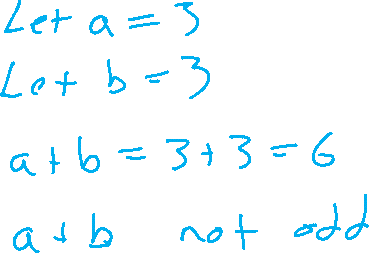 Let a = 3
Let b = 3
a + b = 3 + 3 = 6
a + b not odd